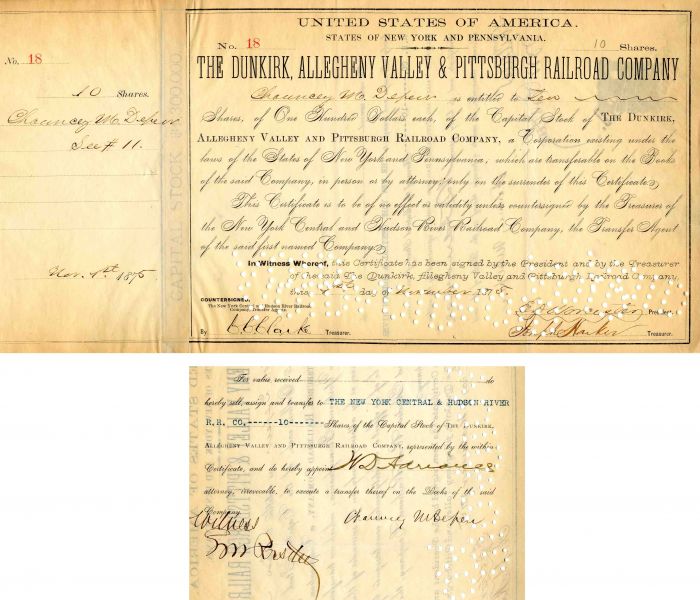 No. 18
10 Shares.
Chauncey M. Depew
See # 11.
Nov. 1st 1875
CAPITAL STOCK
UNITED STATES OF AMERICA.
STATES OF NEW YORK AND PENNSYLVANIA.
No. 18 10 Shares.
THE DUNKIRK, ALLEGHENY VALLEY & PITTSBURGH RAILROAD COMPANY
Chauncey M. Depew is entitled to Ten
Shares, of One Hundred Dollars each, of the Capital Stock of THE DUNKIRK,
ALLEGHENY VALLEY AND PITTSBURGH RAILROAD COMPANY, a Corporation existing under the
laws of the States of New York and Pennsylvania, which are transferable on the Books
of the said Company, in person or by attorney, only on the surrender of this Certificate.
This Certificate is to be of no effect or validity unless countersigned by the Treasurer of
the New York Central and Hudson River Railroad Company, the Transfer Agent
of the said first named Company.
In Witness Whereof, this Certificate has been signed by the President and by the Treasurer
of the said The Dunkirk, Allegheny Valley and Pittsburgh Railroad Company,
this 1st day of November 1875.
COUNTERSIGNED,
The New York Central & Hudson River Railroad
Company, Transfer Agent.
E D Worcester President.
By C C Clarke Treasurer. Treasurer.
For value received do
hereby sell, assign and transfer to THE NEW YORK CENTRAL & HUDSON RIVER
R.R. CO,------10------Shares of the Capital Stock of THE DUNKIRK,
ALLEGHENY VALLEY AND PITTSBURGH RAILROAD COMPANY, represented by the within
Certificate, and do hereby appoint
attorney, irrevocable, to execute a transfer thereof on the Books of the said
Company.
Witness Chauncey M Depew